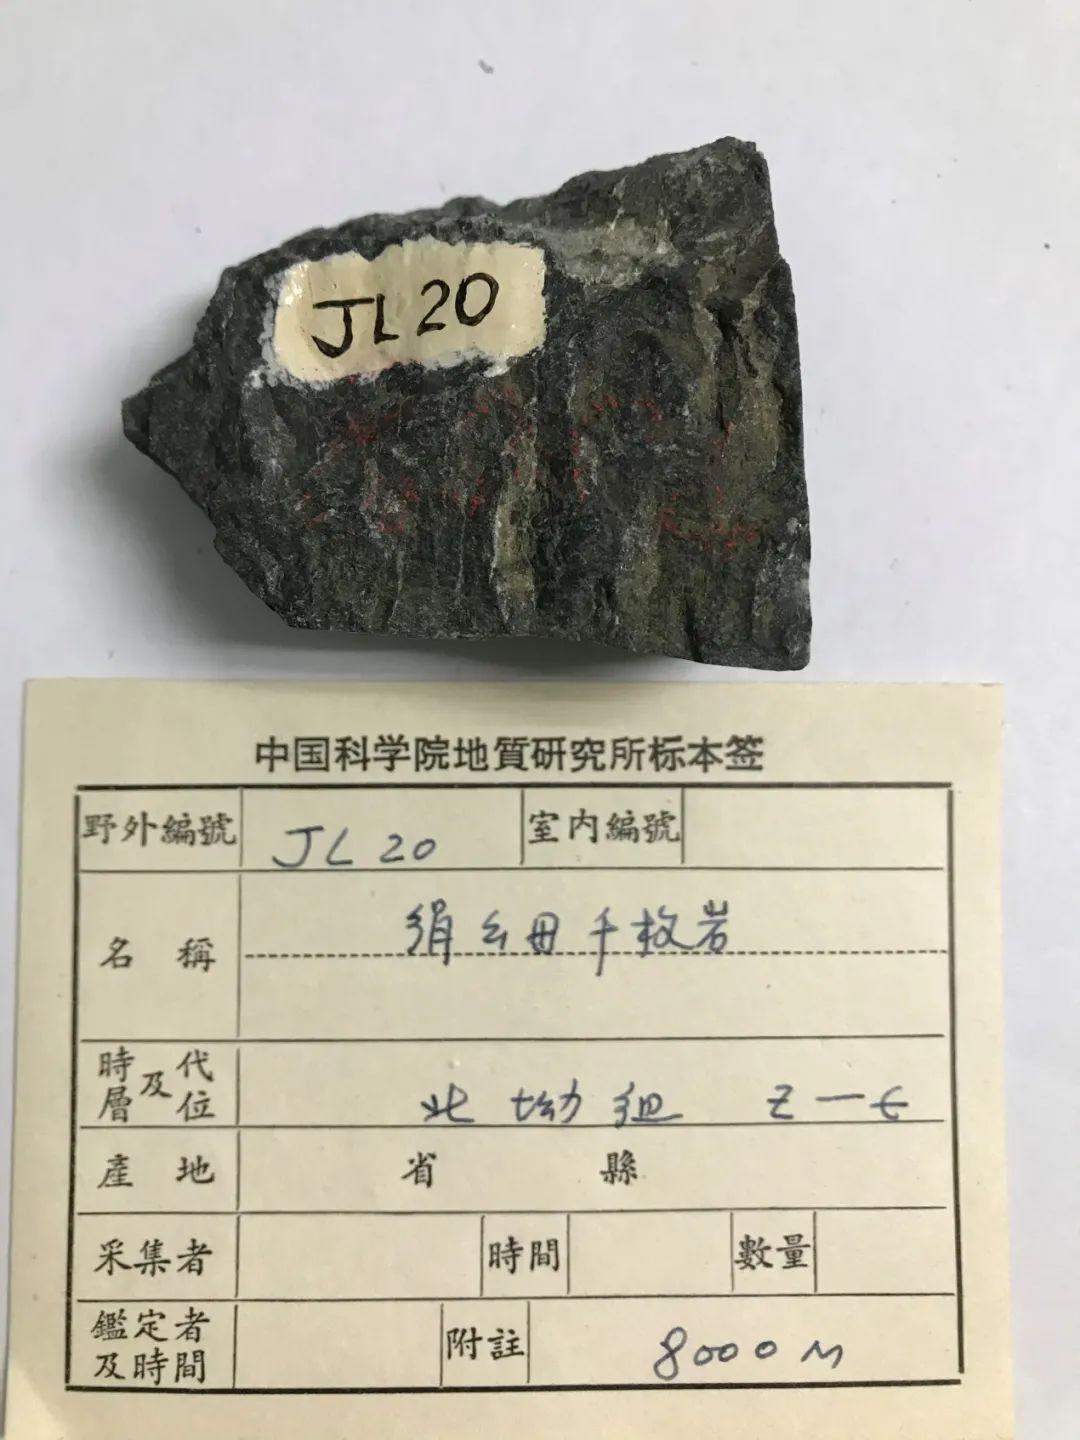 JL20
中国科学院地質研究所标本签
野外編號 JL 20 室内編號
名稱 絹云母千枚岩
時代及層位 北坳組 Z—Є
產地 省 縣
采集者 時間 數量
鑑定者及時間 附註 8000M